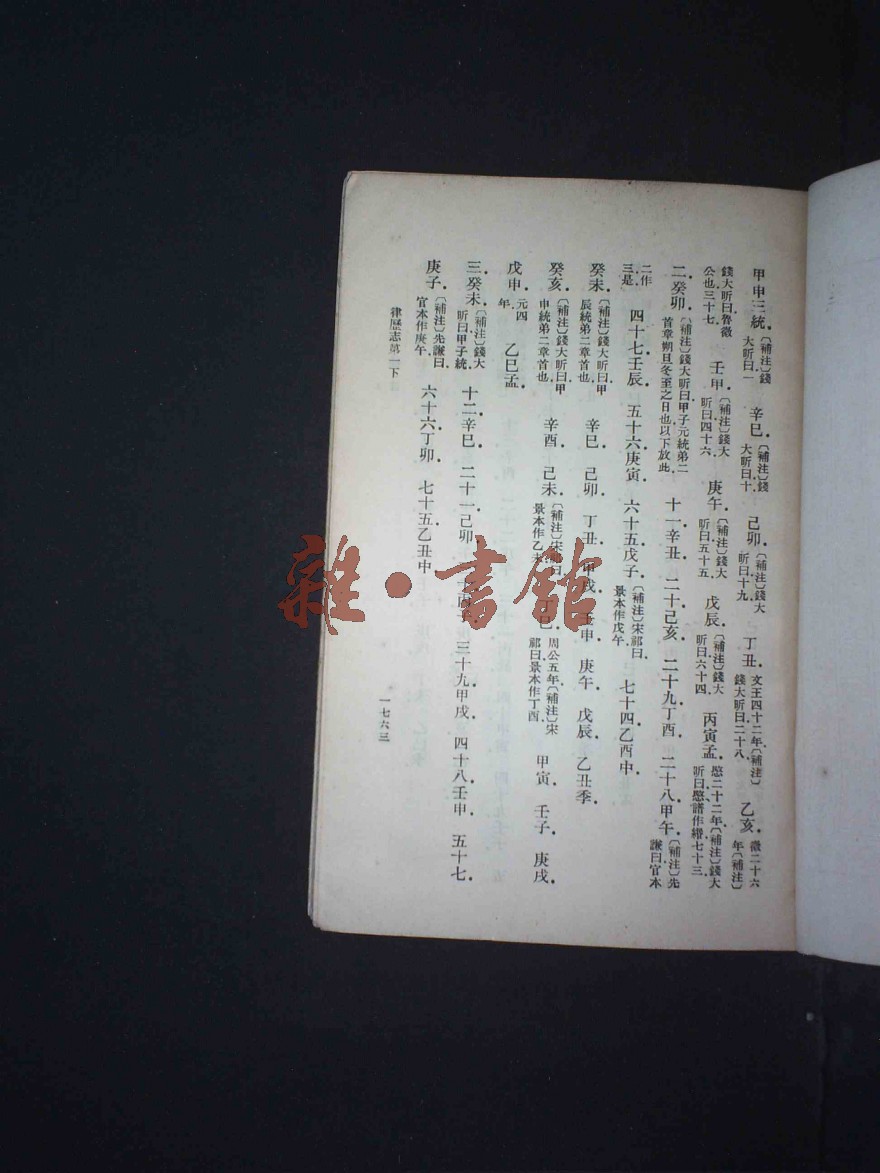 甲申三統．〔補注〕錢大昕曰一　辛巳．〔補注〕錢大昕曰十　己卯．〔補注〕錢大昕曰十九．　丁丑．文王四十二年．〔補注〕錢大昕曰二十八．　乙亥．微二十六年．〔補注〕
錢大昕曰魯微公也三十七　壬甲．〔補注〕錢大昕曰四十六　庚午．〔補注〕錢大昕曰五十五．　戊辰．〔補注〕錢大昕曰六十四．　丙寅孟．愍二十二年．〔補注〕錢大昕曰愍譜作緡七十三．
二．癸卯．〔補注〕錢大昕曰甲子元統弟二首章朔旦冬至之日也以下放此．　十一辛丑．二十己亥．二十九丁酉．二十八甲午．〔補注〕先謙曰官本
二作三是．　四十七壬辰．五十六庚寅．六十五戊子．〔補注〕宋祁曰．景本作戊午．　七十四乙酉中．
癸未．〔補注〕錢大昕曰甲辰統弟二章首也．　辛巳．己卯．丁丑．甲戌．壬申．庚午．戊辰．乙丑季．
癸亥．〔補注〕錢大昕曰甲申統弟二章首也．　辛酉．己未．〔補注〕宋祁曰．景本作乙未．　巳．周公五年．〔補注〕宋祁曰景本作丁酉．　甲寅．壬子．庚戌．
戊申．元四年．　乙巳孟．
三．癸未．〔補注〕錢大昕曰甲子統　十二辛巳．二十一己卯．三十九甲戌．四十八壬申．五十七
庚子．〔補注〕先謙曰．官本作庚午．　六十六丁卯．七十五乙丑中．
律歷志第一下
一七六三
雜·書館